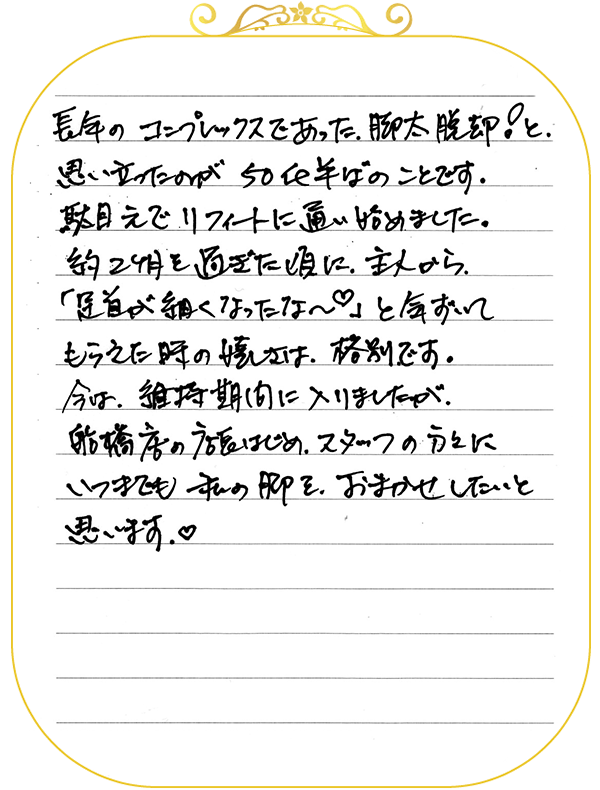 長年の コンプレックスであった、脚太脱却!と、
思い立ったのが 50代半ばのことです。
駄目元で リフィートに通い始めました。
約2ヶ月を過ぎた頃に、主人から、
「足首が細くなったな〜♡」と気ずいて
もらえた時の嬉しさは、格別です。
今は、維持期間に入りましたが、
船橋店の店長はじめ、スタッフの方々に
いつまでも 私の脚を、おまかせしたいと
思います。♡